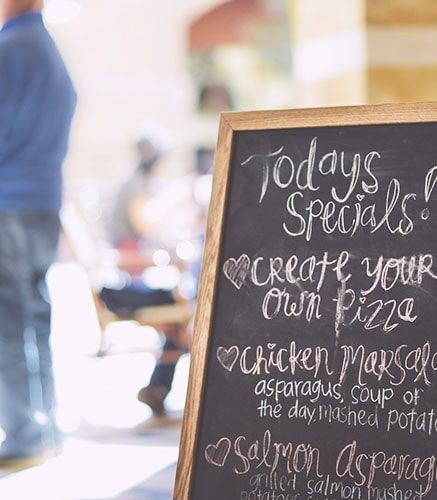 Todays
Specials!
Create your
own pizza
Chicken Marsala
asparagus, soup of
the day, mashed potato
Salmon Asparag
grilled salmon mashed